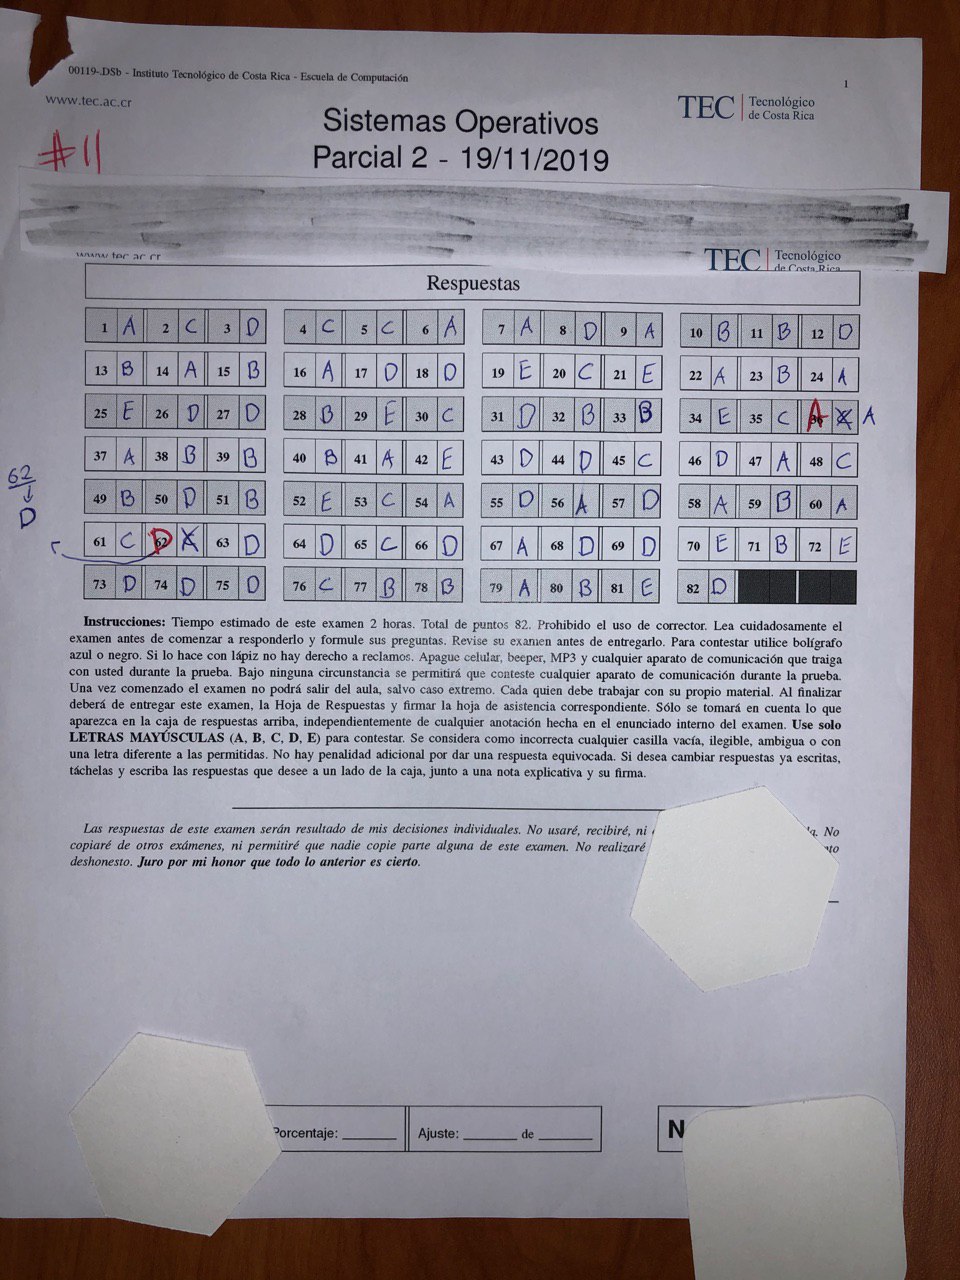 00119-.DSb - Instituto Tecnológico de Costa Rica - Escuela de Computación
1
www.tec.ac.cr
TEC Tecnológico de Costa Rica
Sistemas Operativos
Parcial 2 - 19/11/2019
#11
www.tec.ac.cr
TEC Tecnológico de Costa Rica
Respuestas
1 A 2 C 3 D 4 C 5 C 6 A 7 A 8 D 9 A 10 B 11 B 12 D
13 B 14 A 15 B 16 A 17 D 18 D 19 E 20 C 21 E 22 A 23 B 24 A
25 E 26 D 27 D 28 B 29 E 30 C 31 D 32 B 33 B 34 E 35 C 36 A A
37 A 38 B 39 B 40 B 41 A 42 E 43 D 44 D 45 C 46 D 47 A 48 C
62
D
49 B 50 D 51 B 52 E 53 C 54 A 55 D 56 A 57 D 58 A 59 B 60 A
61 C 62 D 63 D 64 D 65 C 66 D 67 A 68 D 69 D 70 E 71 B 72 E
73 D 74 D 75 D 76 C 77 B 78 B 79 A 80 B 81 E 82 D
Instrucciones: Tiempo estimado de este examen 2 horas. Total de puntos 82. Prohibido el uso de corrector. Lea cuidadosamente el
examen antes de comenzar a responderlo y formule sus preguntas. Revise su examen antes de entregarlo. Para contestar utilice bolígrafo
azul o negro. Si lo hace con lápiz no hay derecho a reclamos. Apague celular, beeper, MP3 y cualquier aparato de comunicación que traiga
con usted durante la prueba. Bajo ninguna circunstancia se permitirá que conteste cualquier aparato de comunicación durante la prueba.
Una vez comenzado el examen no podrá salir del aula, salvo caso extremo. Cada quien debe trabajar con su propio material. Al finalizar
deberá de entregar este examen, la Hoja de Respuestas y firmar la hoja de asistencia correspondiente. Sólo se tomará en cuenta lo que
aparezca en la caja de respuestas arriba, independientemente de cualquier anotación hecha en el enunciado interno del examen. Use solo
LETRAS MAYÚSCULAS (A, B, C, D, E) para contestar. Se considera como incorrecta cualquier casilla vacía, ilegible, ambigua o con
una letra diferente a las permitidas. No hay penalidad adicional por dar una respuesta equivocada. Si desea cambiar respuestas ya escritas,
táchelas y escriba las respuestas que desee a un lado de la caja, junto a una nota explicativa y su firma.
Las respuestas de este examen serán resultado de mis decisiones individuales. No usaré, recibiré, ni No
copiaré de otros exámenes, ni permitiré que nadie copie parte alguna de este examen. No realizaré
deshonesto. Juro por mi honor que todo lo anterior es cierto.
Porcentaje: Ajuste: de N